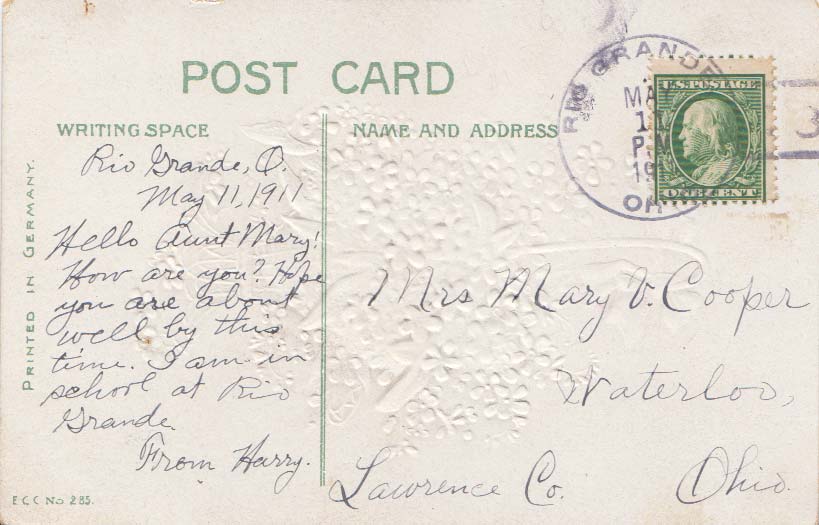 POST CARD
WRITING SPACE
NAME AND ADDRESS
Rio Grande, O.
May 11, 1911
Hello Aunt Mary!
How are you? Hope
you are about
well by this
time. I am in
school at Rio
Grande.
From Harry.
Mrs Mary V. Cooper
Waterloo,
Lawrence Co. Ohio.
RIO GRANDE
MAY
11
P.M
19
OH
3
U.S. POSTAGE
ONE CENT
PRINTED IN GERMANY.
E.C.C. No 285.